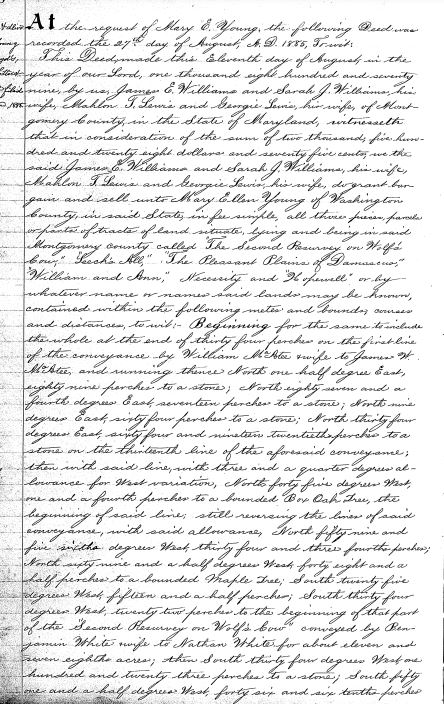 At the request of Mary E. Young, the following Deed was
recorded the 27th day of August, A.D. 1885, To wit:
This Deed, made this Eleventh day of August, in the
year of our Lord, one thousand eight hundred and seventy
nine, by us, James E. Williams and Sarah J. Williams, his
wife, Mahlon T. Lewis and Georgie Lewis, his wife, of Mont-
gomery County, in the State of Maryland, witnesseth
that in consideration of the sum of two thousand, five hun-
dred and twenty eight dollars and seventy five cents, we the
said James E. Williams and Sarah J. Williams, his wife,
Mahlon T. Lewis and Georgie Lewis, his wife, do grant bar-
gain and sell unto Mary Ellen Young of Washington
County, in said State, in fee simple, all those pieces, parcels
or parts of tracts of land situate, lying and being in said
Montgomery county called "The Second Resurvey on Wolf's
Cow," "The Pleasant Plains of Damascus,"
"William and Ann," Necessity and "Hopewell" or by
whatever name or names said lands may be known,
contained within the following metes and bounds, courses
and distances, to wit:- Beginning for the same to include
the whole at the end of thirty four perches on the first line
of the conveyance by William McAtee wife to James W.
McAtee, and running thence North one half degree East,
eighty nine perches to a stone; North eighty seven and a
fourth degrees East, seventeen perches to a stone; North nine
degrees East, sixty four perches to a stone; North thirty four
degrees East, sixty four and nineteen twentieths perches to a
stone on the thirteenth line of the aforesaid conveyance;
then with said line, with three and a quarter degrees al-
lowance for West variation, North forty five degrees West,
one and a fourth perches to a bounded Box Oak Tree, the
beginning of said line; still reversing the lines of said
conveyance, with said allowance, North fifty nine and
five sixths degrees West, thirty four and three fourths perches;
North sixty nine and a half degrees West, forty eight and a
half perches to a bounded Maple Tree; South twenty five
degrees West, fifteen and a half perches; South thirty four
degrees West, twenty two perches to the beginning of that part
of the "Second Resurvey on Wolf's Cow" conveyed by Ben-
jamin White wife to Nathan White for about eleven and
seven eighths acres; then South thirty four degrees West one
hundred and twenty three perches to a stone; South fifty
one and a half degrees West, forty six and six tenths perches